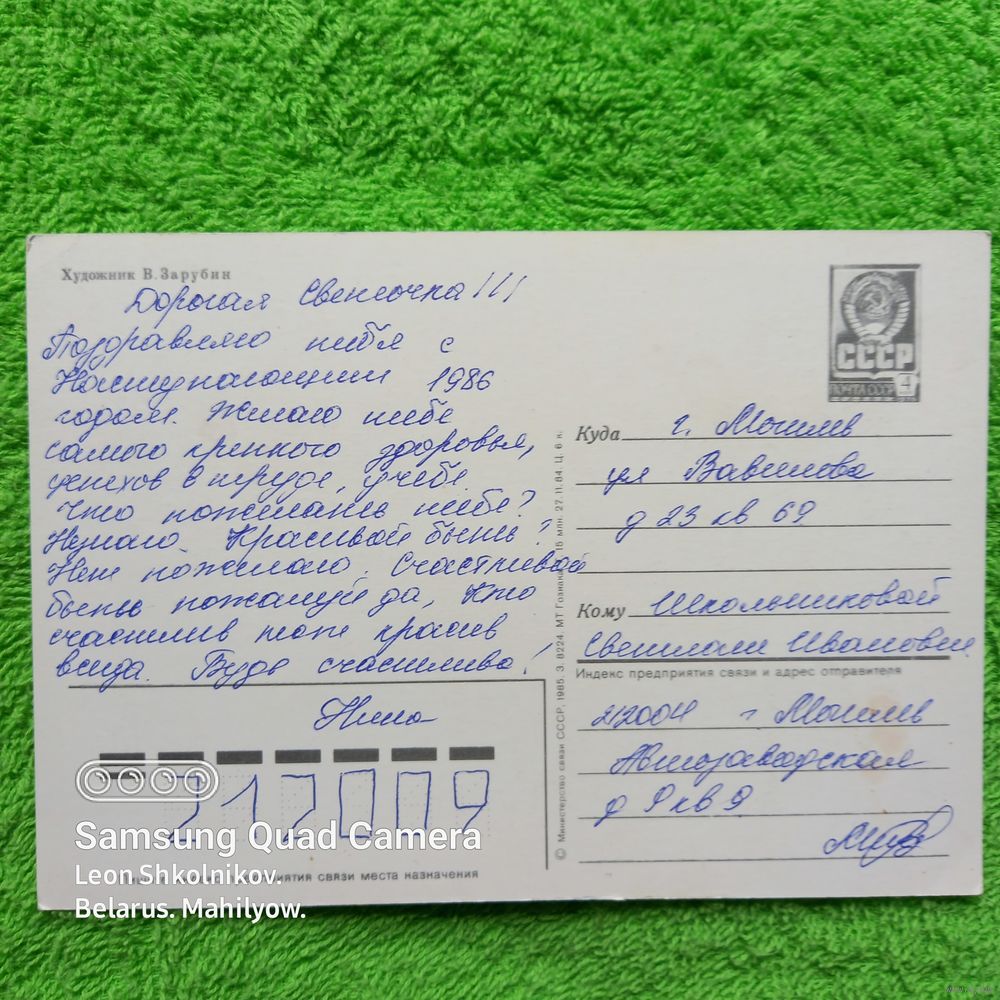 Художник В. Зарубин
Дорогая Светочка!!!
Поздравляю тебя с
Наступающим 1986
годом. Желаю тебе
самого крепкого здоровья,
успехов в труде, учебе.
Что пожелать тебе?
Незнаю. Красивой быть?
Нет пожелаю. Счастливой
быть пожалуй да, Кто
счастлив тот красив
всегда. Будь счастлива!
Нина
212009
СССР
ПОЧТА СССР 4
Куда г. Могилев
ул Вавилова
д 23 кв 69
Кому Школьниковой
Светлане Ивановне
Индекс предприятия связи и адрес отправителя
212004 г Могилев
Автозаводская
д 9 кв 9
© Министерство связи СССР, 1985. З. 8224. МТ Гознака. 15 млн. 27.11.84. Ц. 6 к.
предприятия связи места назначения
Samsung Quad Camera
Leon Shkolnikov.
Belarus. Mahilyow.